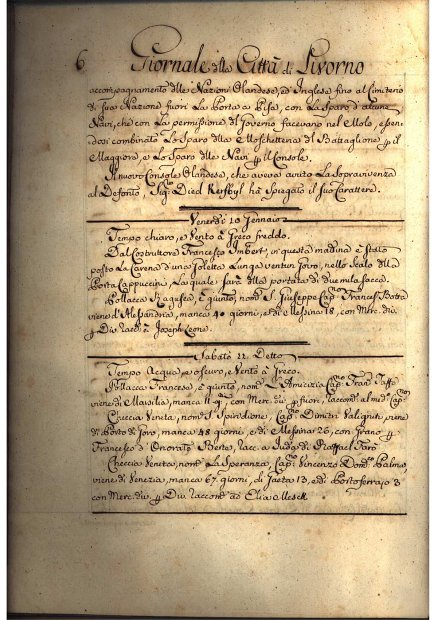 6 Giornale della Città di Livorno
accompagnamento delle Nazioni Olandese, ed Inglese fino al Cimiterio
di sua Nazione fuori La Porta a Pisa, con La Sparo d'alcune
Navi, che con La permissione del Governo facevano nel Molo, essen-
dosi combinato Lo Sparo della Moschetteria del Battaglione il
Maggiore, e Lo Sparo delle Navi il Console.
Il nuovo Console Olandese, che aveva avuto La Sopravivenza
al Defonto, Sig. Died ha Spiegato il suo Carattere.
Venerdì 10 Gennaio
Tempo chiaro, e Vento à Greco freddo.
Dal Costruttore Francesco Imbert, in questa mattina è stato
posto La Carena d'una Goletta Lunga ventun Goro, nello Scalo della
Porta Cappuccini, La quale sarà della portata di duemila Sacca.
Pollacca Ragusea, è giunto, nom. S. Giuseppe Cap.
viene d'Alessandria, manca 40 giorni, e di Messina 18, con Merc. div.
Div. Racc. à Joseph Leone.
Sabato 11 Detto
Tempo Acqua, e oscuro, Vento à Greco.
Pollacca Francese, è giunto, nom. L'Amicizia Cap.
viene di Marsilia, manca 11 g., con Merc. div. fuori, raccom. al med. Cap.
Checcia Veneta, nom. S. Spiridione, Cap. Dimitri viene
di Porto di Goro, manca 48 giorni, e di Messina 26, con Grano
Francesco d'Onorato Berte, racc. a Juda di Raffael Faro
Checcia Veneta, nom. La Speranza, Cap. Vincenzo Dom. Palma,
viene di Venezia, manca 67 giorni, di Gaeta 13, e di Portoferrajo 3
con Merc. div. Div. raccom. ad Elia